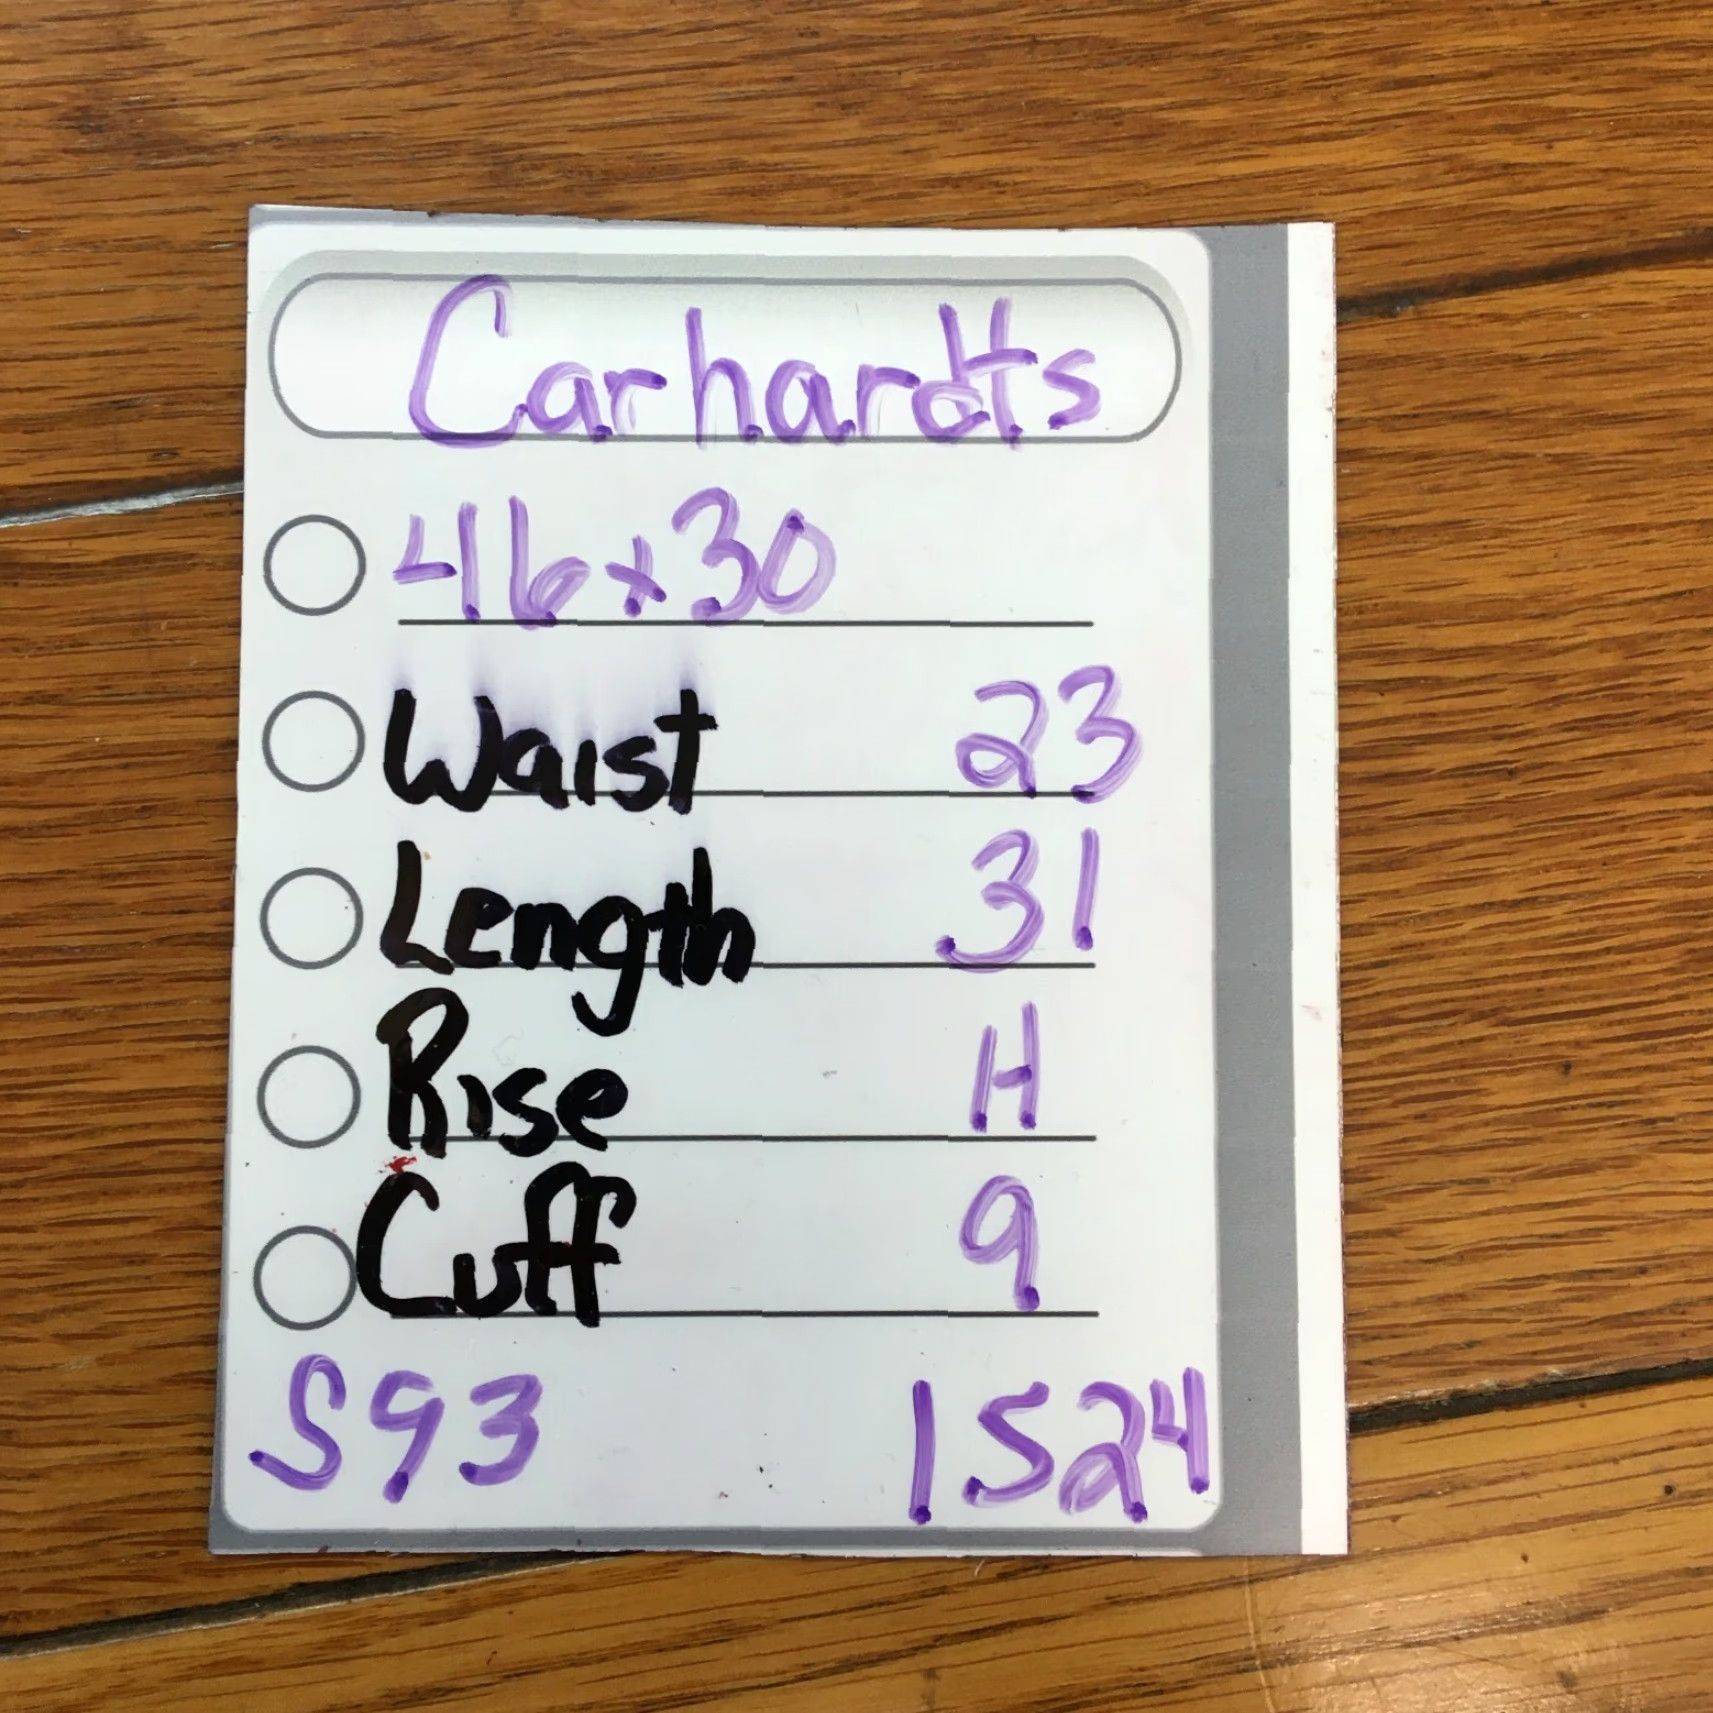 Carhardts
46x30
Waist 23
Length 31
Rise H
Cuff 9
S93 1S24